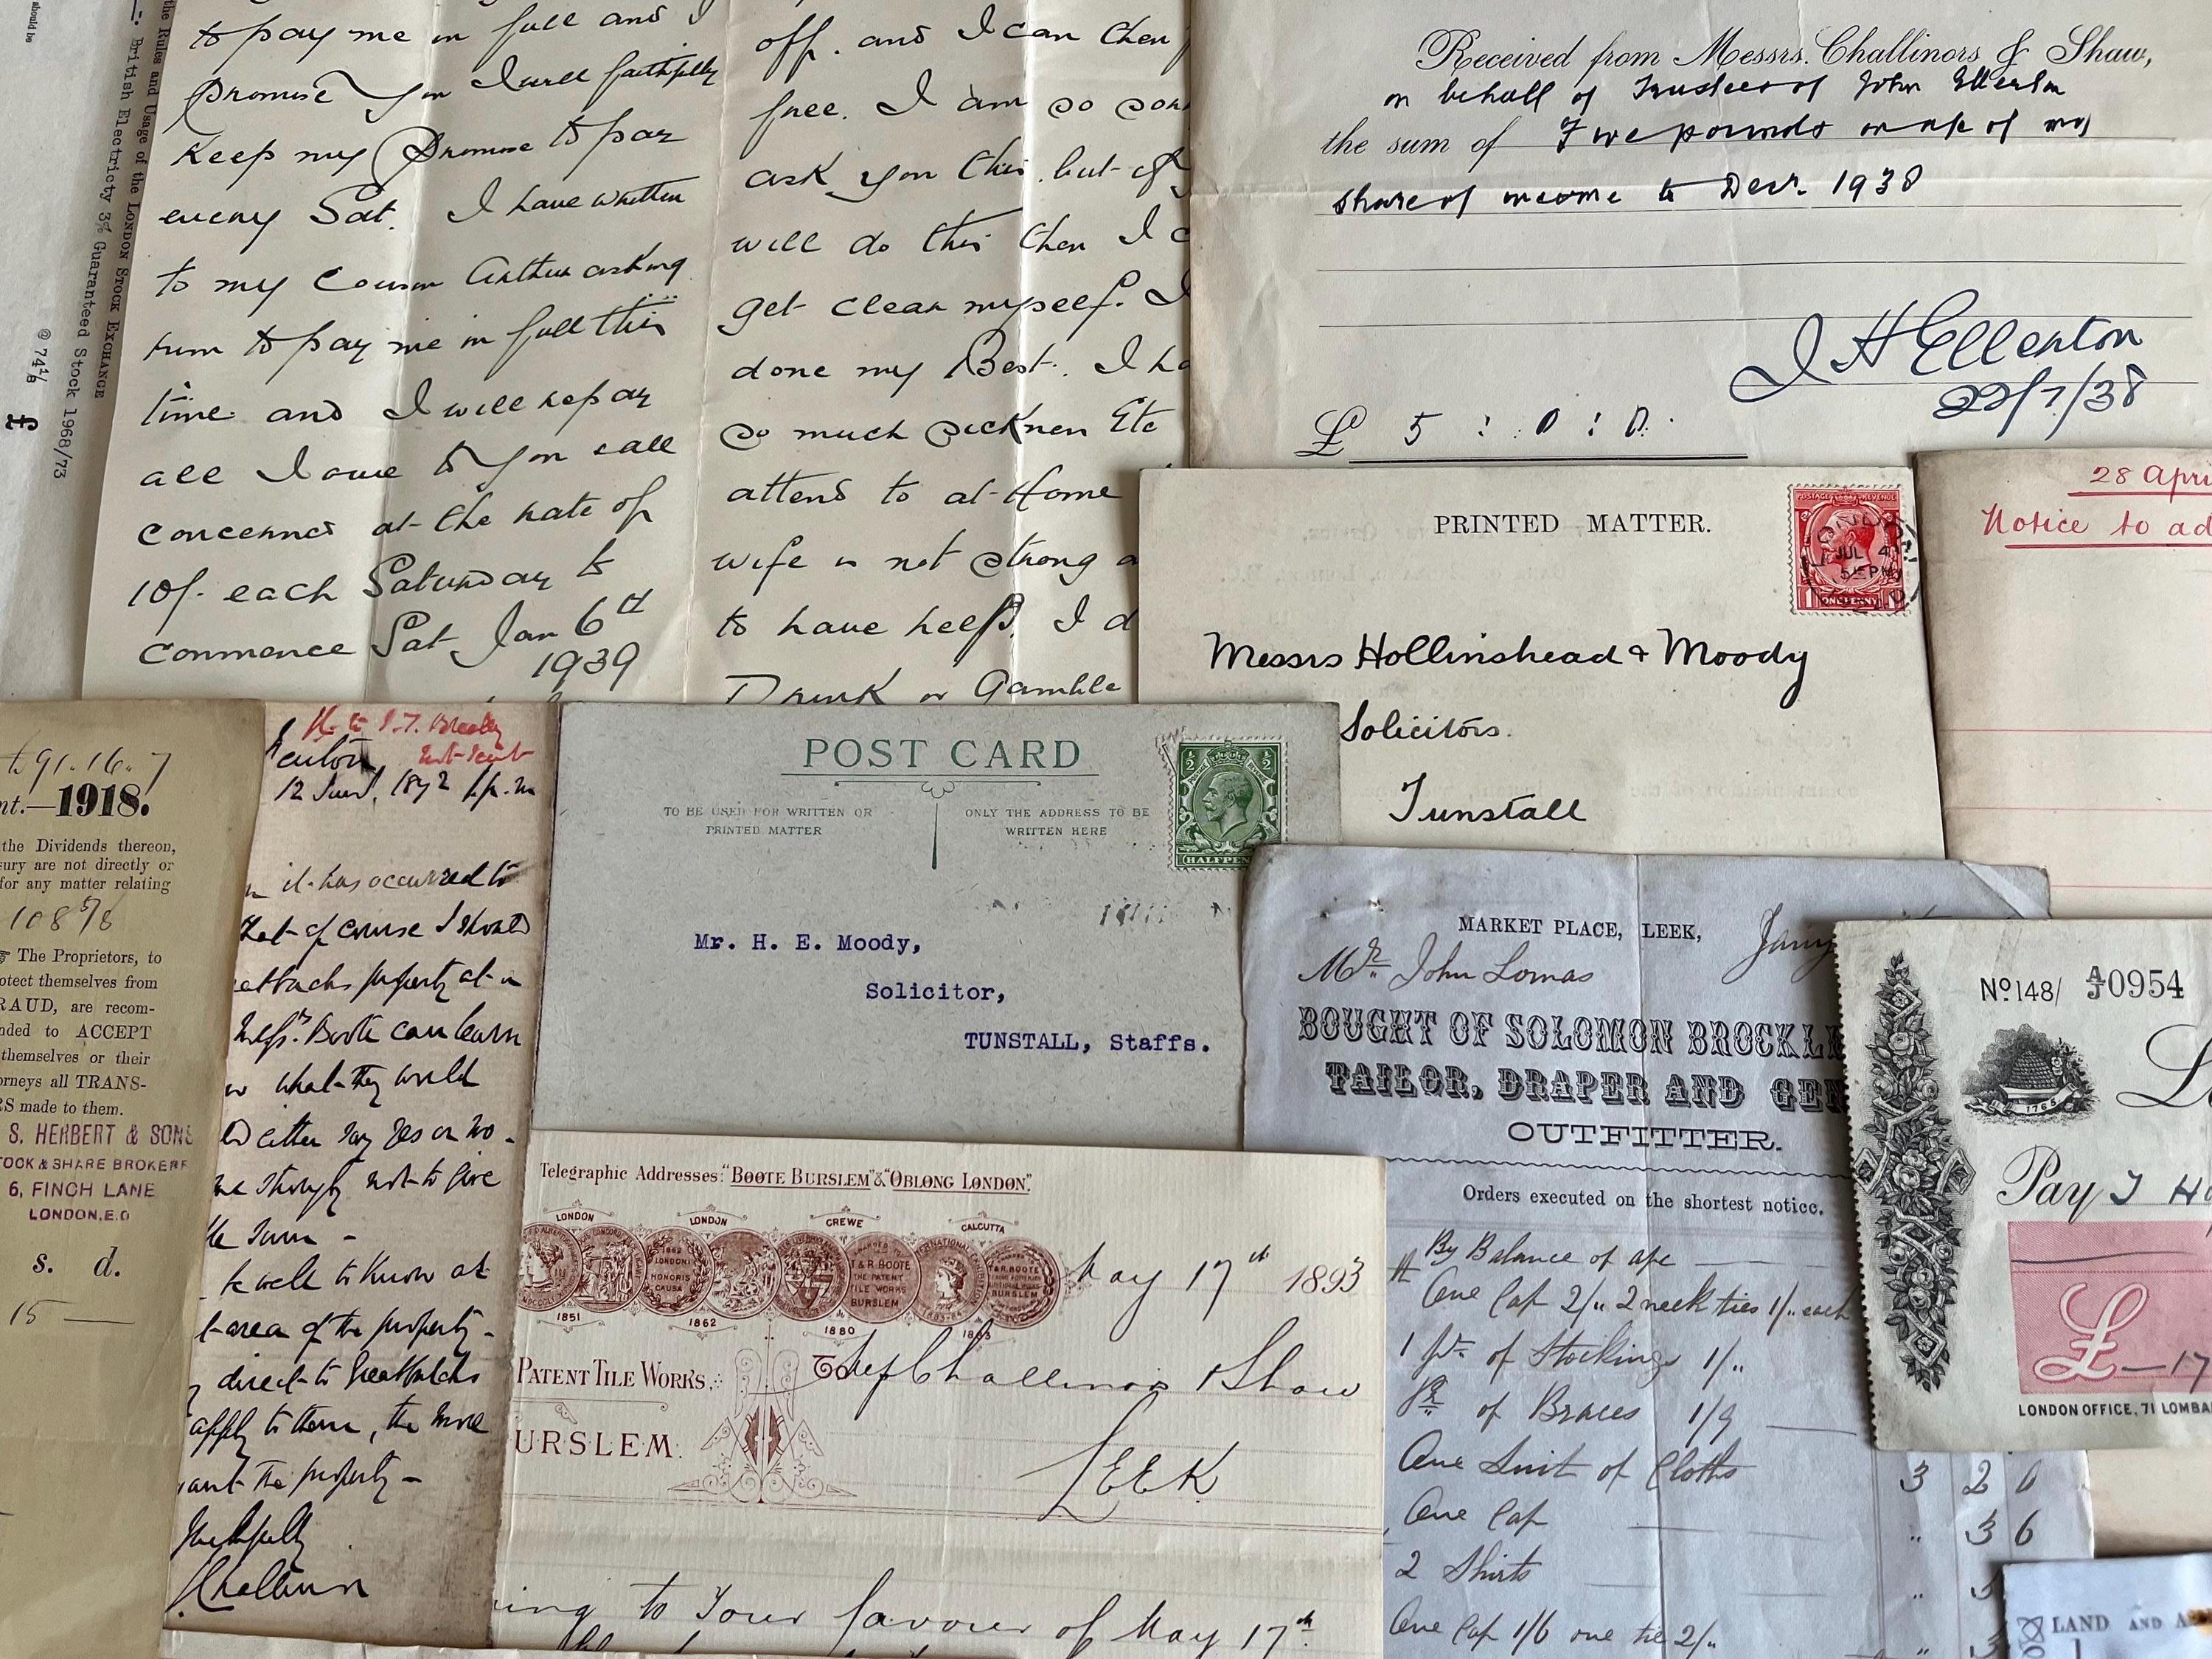 should be
the Rules and Usage of the LONDON STOCK EXCHANGE
British Electricity 3% Guaranteed Stock 1968/73
@ 74 1/8 £
to pay me in full and I
Promise you I will faithfully
keep my Promise to pay
every Sat. I have written
to my Cousin Arthur asking
him to pay me in full this
time and I will repay
all I owe to you all
concerned at the rate of
10/- each Saturday to
commence Sat Jan 6th
1939
off. and I can then
free. I am so
ask you this, but
will do this then I
get clear myself. I
done my Best. I ha
so much sickness Etc
attend to at Home
wife is not strong a
to have help. I d
Drink or Gamble
Received from Messrs. Challinors & Shaw,
on behalf of Trustees of John Ellerton
the sum of Five pounds on a/c of my
share of income to Decr. 1938
J H Ellerton
22/7/38
£ 5 : 0 : 0
28 Apri
Notice to ad
PRINTED MATTER.
POSTAGE REVENUE
JUL 4
5 15 PM
ONE PENNY
Messrs Hollinshead & Moody
Solicitors.
Tunstall
91.16.7
nt.—1918.
the Dividends thereon,
sury are not directly or
for any matter relating
108 5/8
The Proprietors, to
otect themselves from
RAUD, are recom-
nded to ACCEPT
themselves or their
orneys all TRANS-
RS made to them.
S. HERBERT & SONS
TOCK & SHARE BROKERS
6, FINCH LANE
LONDON, E.C
s. d.
15 —
12 June, 1872
it has occurred to
that of course I should
property at
Messrs. Boote can learn
what they would
either say Yes or No.
not to give
be well to know at
t area of the property -
direct to
apply to them, the more
want the property -
Faithfully
Challinor
POST CARD
TO BE USED FOR WRITTEN OR
PRINTED MATTER
ONLY THE ADDRESS TO BE
WRITTEN HERE
½ ½
HALFPEN
Mr. H. E. Moody,
Solicitor,
TUNSTALL, Staffs.
Telegraphic Addresses: "BOOTE BURSLEM" & "OBLONG LONDON".
LONDON LONDON CREWE CALCUTTA
1862
LONDINI
HONORIS
CAUSA
T & R BOOTE
THE PATENT
TILE WORKS
BURSLEM
T & R BOOTE
BURSLEM
1851 1862 1880 1883
May 17th 1893
PATENT TILE WORKS,
To Messrs Challinors & Shaw
URSLEM.
LEEK
ing to your favour of May 17th
MARKET PLACE, LEEK,
Jany
Mr. John Lomas
BOUGHT OF SOLOMON BROCKL
TAILOR, DRAPER AND GEN
OUTFITTER.
Orders executed on the shortest notice.
By Balance of a/c
One Cap 2/" 2 neck ties 1/" each
1 Pr. of Stockings 1/"
Pr. of Braces 1/9
One Suit of Cloths 3 2 0
One Cap " 3 6
2 Shirts " 3
One Cap 1/6 one tie 2/" " 3
No 148/ A/J 0954
1765
L
Pay J H
£ —17
LONDON OFFICE, 71 LOMBA
LAND AND A